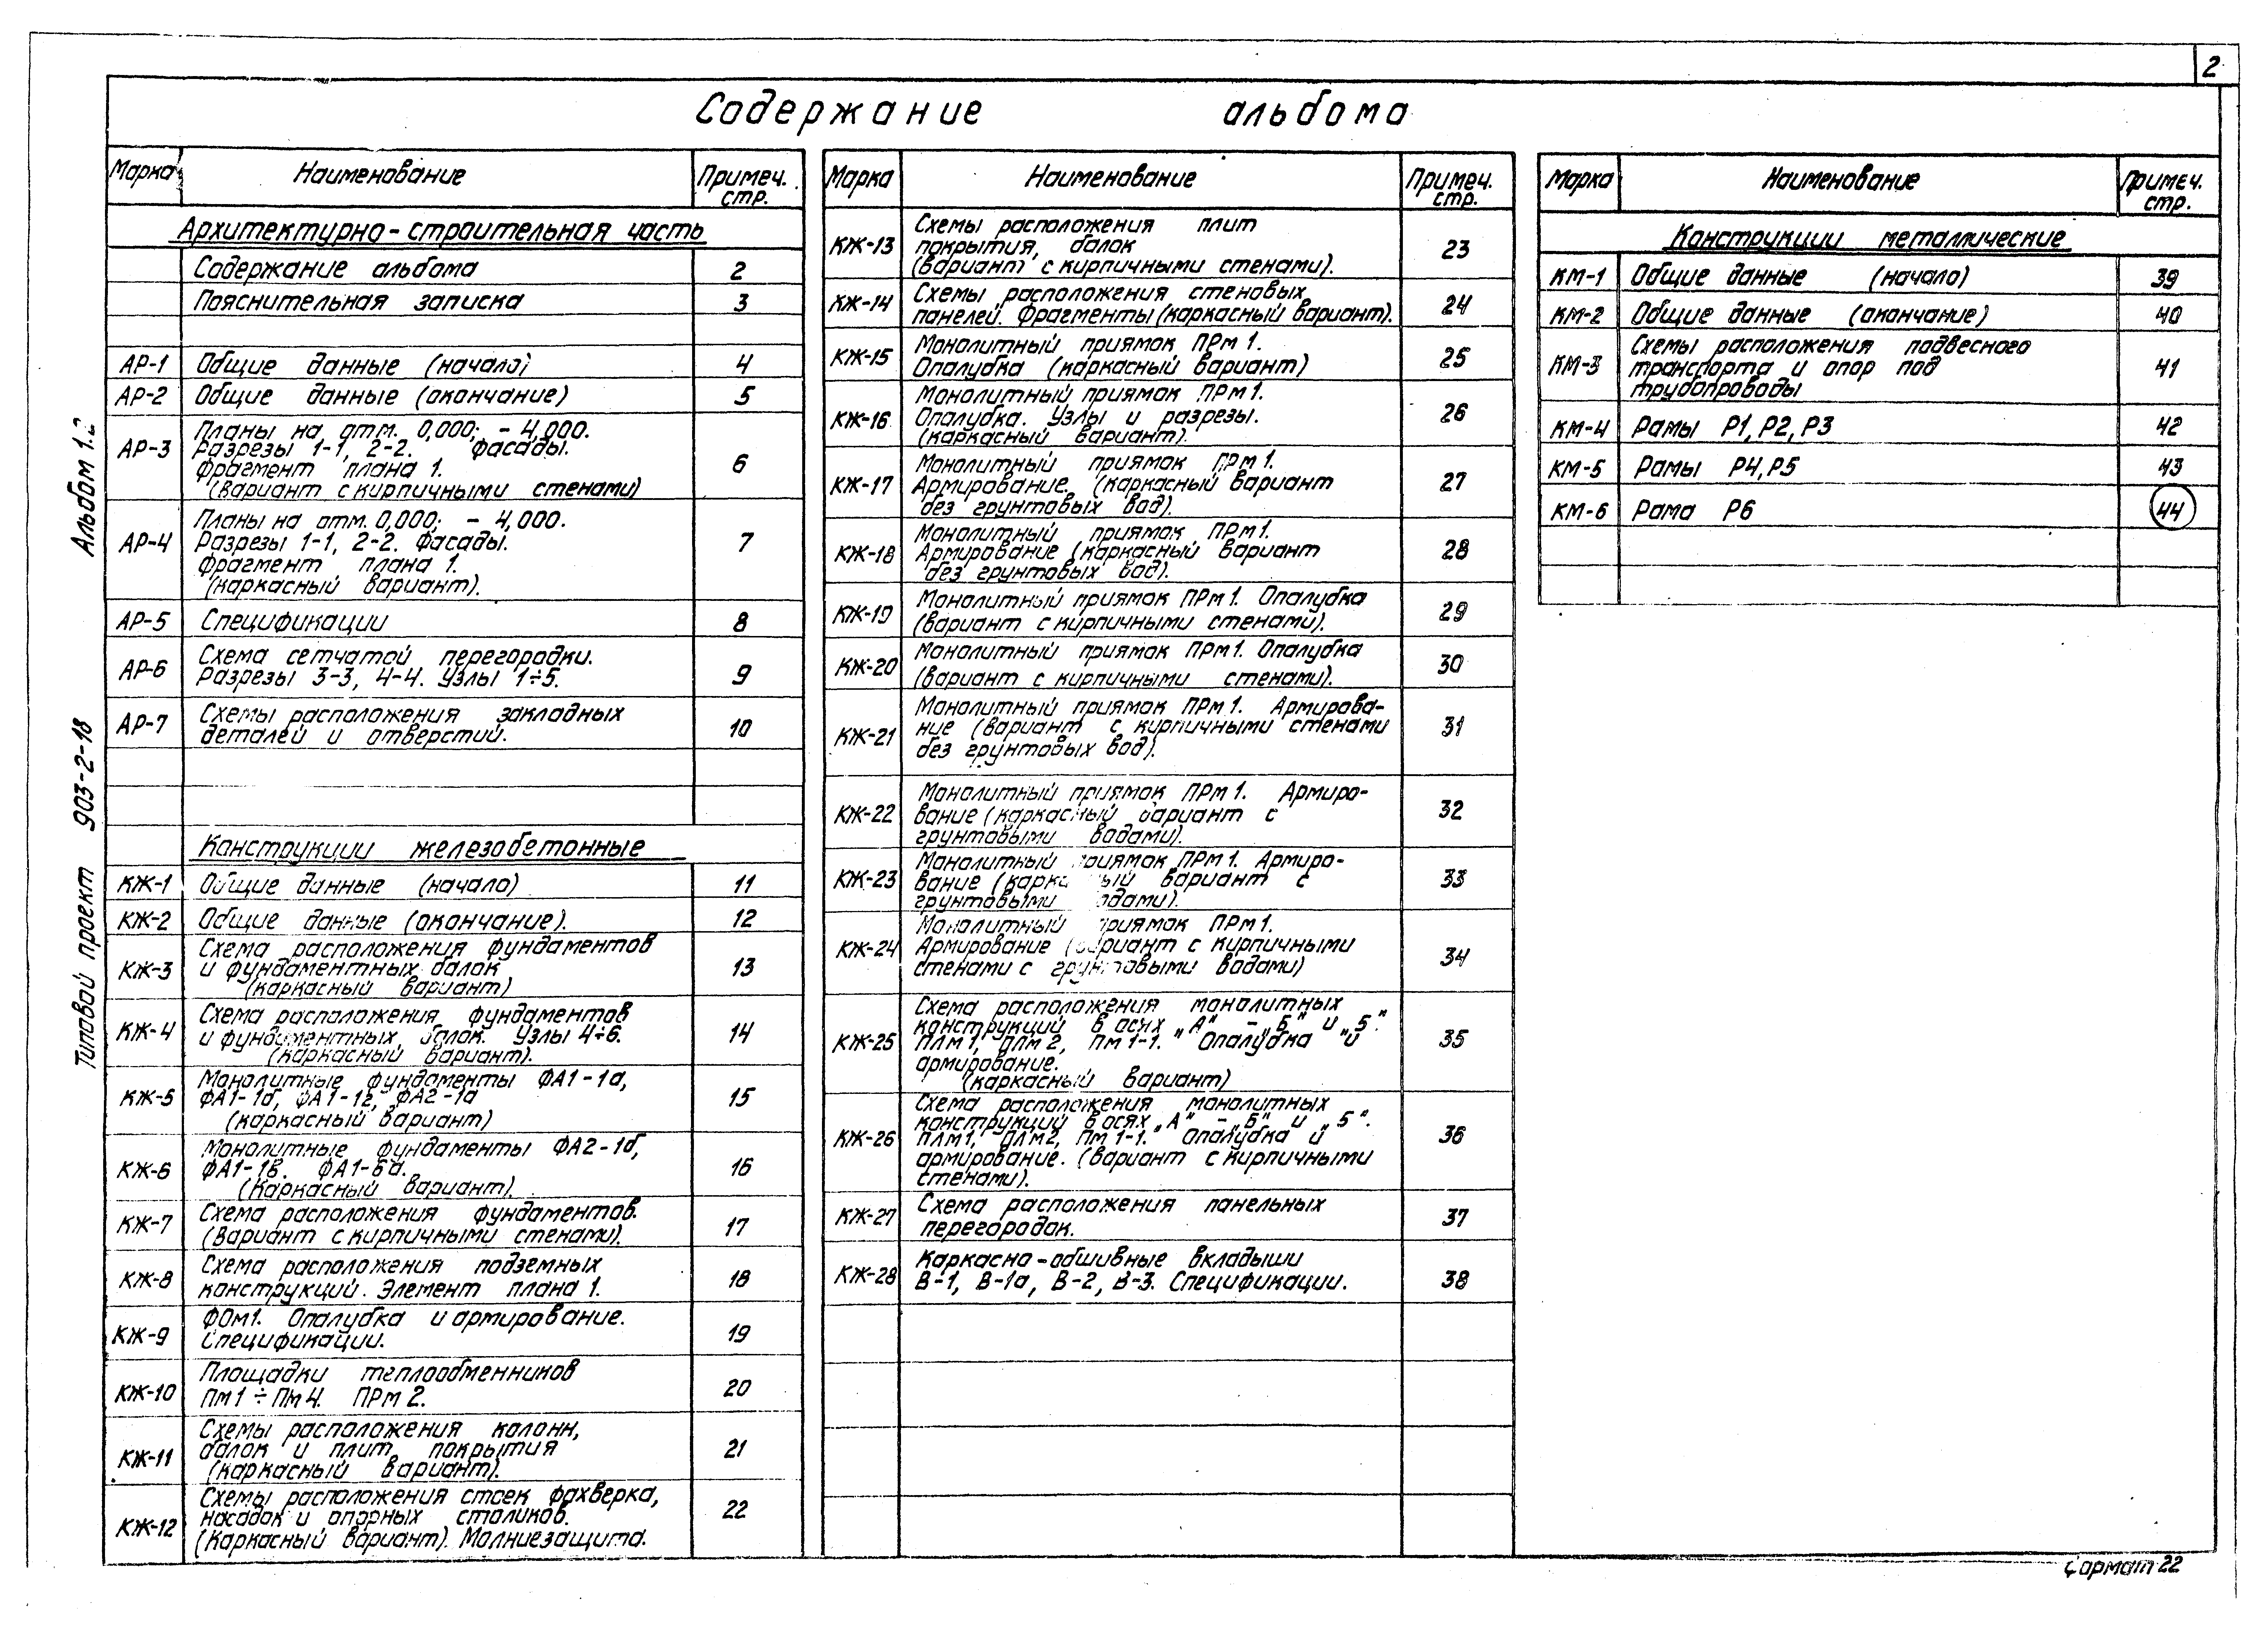 2
Содержание альбома
Марка
Наименование
Примеч. стр.
Архитектурно-строительная часть
Содержание альбома 2
Пояснительная записка 3
АР-1 Общие данные (начало) 4
АР-2 Общие данные (окончание) 5
АР-3 Планы на отм. 0,000; -4,000.
Разрезы 1-1, 2-2. Фасады.
Фрагмент плана 1.
(Вариант с кирпичными стенами) 6
АР-4 Планы на отм. 0,000; -4,000.
Разрезы 1-1, 2-2. Фасады.
Фрагмент плана 1.
(каркасный вариант). 7
АР-5 Спецификации 8
АР-6 Схема сетчатой перегородки.
Разрезы 3-3, 4-4. Узлы 1÷5. 9
АР-7 Схемы расположения закладных
деталей и отверстий. 10
Конструкции железобетонные
КЖ-1 Общие данные (начало) 11
КЖ-2 Общие данные (окончание). 12
КЖ-3 Схема расположения фундаментов
и фундаментных балок
(каркасный вариант) 13
КЖ-4 Схема расположения фундаментов
и фундаментных балок. Узлы 4÷6.
(каркасный вариант). 14
КЖ-5 Монолитные фундаменты ФА1-1а,
ФА1-1б, ФА1-1г, ФА2-1а
(каркасный вариант) 15
КЖ-6 Монолитные фундаменты ФА2-1б,
ФА1-1в. ФА1-6а.
(Каркасный вариант). 16
КЖ-7 Схема расположения фундаментов.
(Вариант с кирпичными стенами). 17
КЖ-8 Схема расположения подземных
конструкций. Элемент плана 1. 18
КЖ-9 ФОм1. Опалубка и армирование.
Спецификации. 19
КЖ-10 Площадки теплообменников
Пм1 ÷ Пм4. ПРм2. 20
КЖ-11 Схемы расположения колонн,
балок и плит покрытия
(каркасный вариант). 21
КЖ-12 Схемы расположения стоек фахверка,
насадок и опорных столиков.
(Каркасный вариант). Молниезащита. 22
Марка
Наименование
Примеч. стр.
КЖ-13 Схемы расположения плит
покрытия, балок
(вариант с кирпичными стенами). 23
КЖ-14 Схемы расположения стеновых
панелей. Фрагменты (каркасный вариант). 24
КЖ-15 Монолитный приямок ПРм1.
Опалубка (каркасный вариант) 25
КЖ-16 Монолитный приямок ПРм1.
Опалубка. Узлы и разрезы.
(каркасный вариант). 26
КЖ-17 Монолитный приямок ПРм1.
Армирование. (каркасный вариант
без грунтовых вод). 27
КЖ-18 Монолитный приямок ПРм1.
Армирование (каркасный вариант
без грунтовых вод). 28
КЖ-19 Монолитный приямок ПРм1. Опалубка
(вариант с кирпичными стенами). 29
КЖ-20 Монолитный приямок ПРм1. Опалубка
(вариант с кирпичными стенами). 30
КЖ-21 Монолитный приямок ПРм1. Армирова-
ние (вариант с кирпичными стенами
без грунтовых вод). 31
КЖ-22 Монолитный приямок ПРм1. Армиро-
вание (каркасный вариант с
грунтовыми водами). 32
КЖ-23 Монолитный приямок ПРм1. Армиро-
вание (каркасный вариант с
грунтовыми водами). 33
КЖ-24 Монолитный приямок ПРм1.
Армирование (вариант с кирпичными
стенами с грунтовыми водами) 34
КЖ-25 Схема расположения монолитных
конструкций в осях „А" - „Б" и „5".
ПЛм1, ПЛм2, Пм1-1. Опалубка и
армирование.
(каркасный вариант) 35
КЖ-26 Схема расположения монолитных
конструкций в осях „А" - „Б" и „5".
ПЛм1, ПЛм2, Пм1-1. Опалубка и
армирование. (вариант с кирпичными
стенами). 36
КЖ-27 Схема расположения панельных
перегородок. 37
КЖ-28 Каркасно-обшивные вкладыши
В-1, В-1а, В-2, В-3. Спецификации. 38
Марка
Наименование
Примеч. стр.
Конструкции металлические
КМ-1 Общие данные (начало) 39
КМ-2 Общие данные (окончание) 40
КМ-3 Схемы расположения подвесного
транспорта и опор под
трубопроводы 41
КМ-4 Рамы Р1, Р2, Р3 42
КМ-5 Рамы Р4, Р5 43
КМ-6 Рама Р6 44
Типовой проект 903-2-18 Альбом 1.2
Формат 22